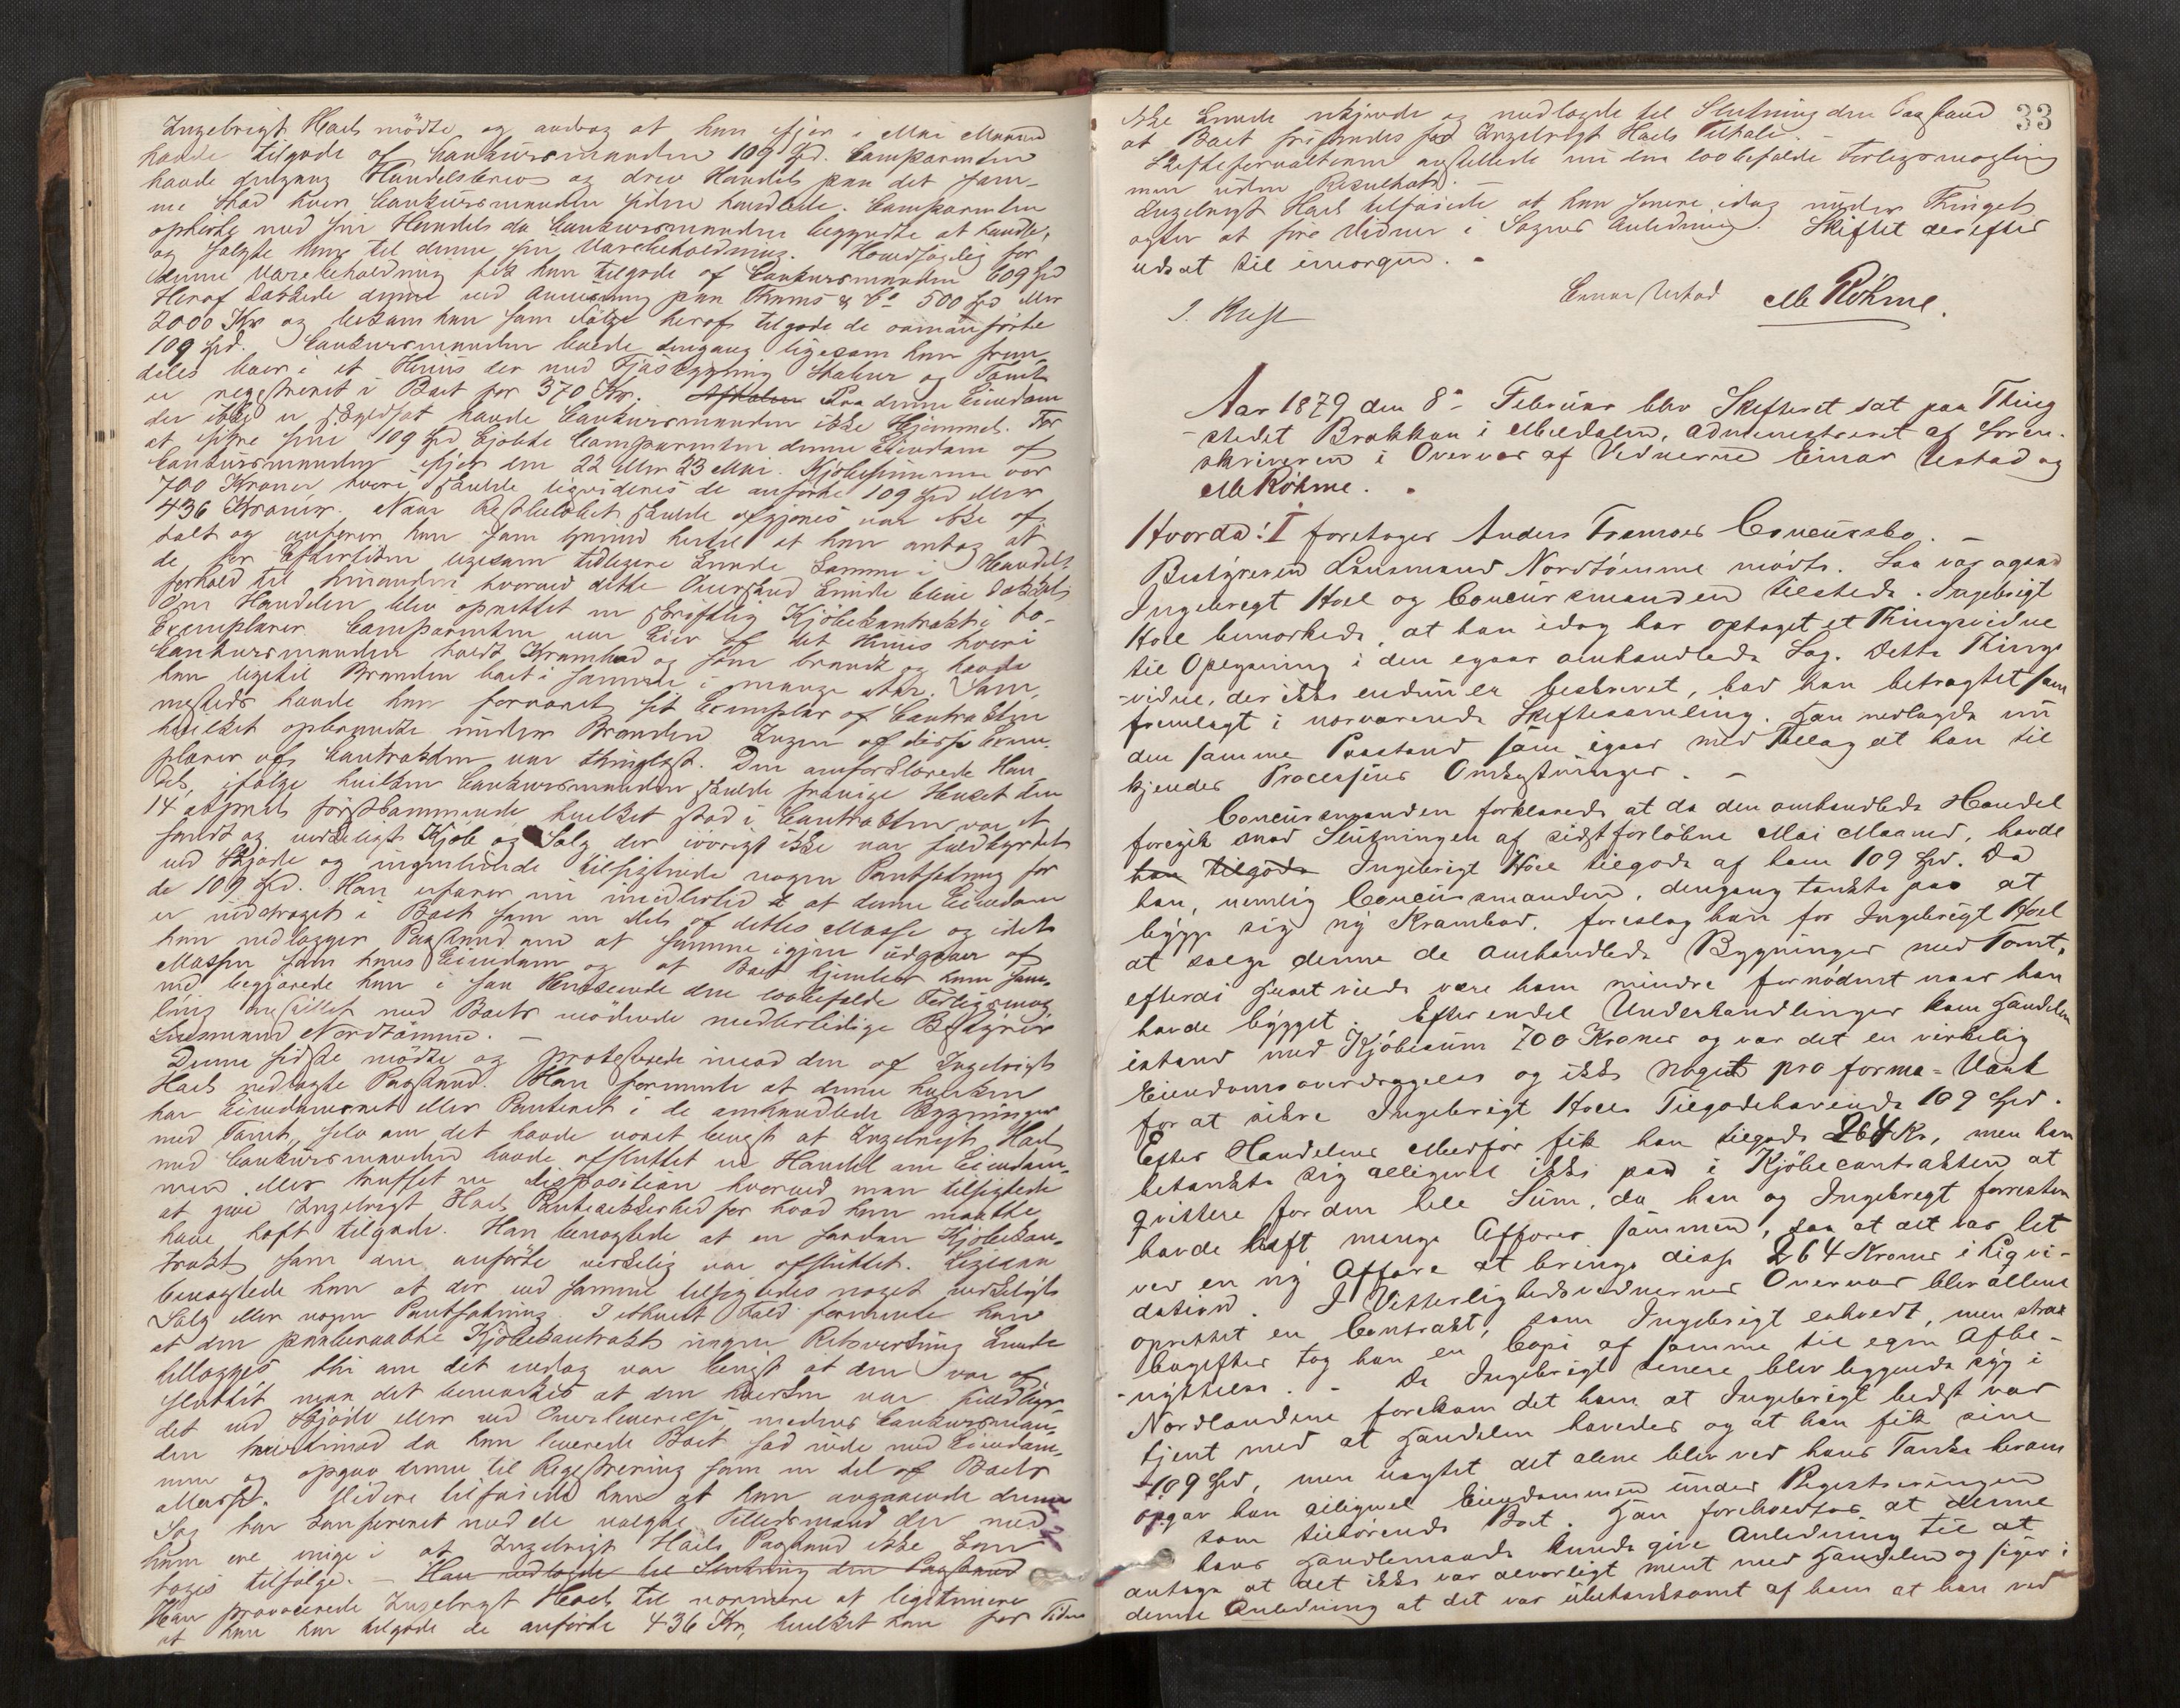 Ingebrigt Hoel mödte og androg at han ifjor i Mai Maaned
havde tilgode af Concursmanden 109 Spd. Comparenten
havde dengang Handelsbrev og drev Handel paa det sam-
me Sted hvor Concursmanden siden handlede. Comparenten
ophörte med sin Handel da Concursmanden begyndte at handle,
og solgte han til denne sin Varebeholdning. Hovedsagelig for
denne Varebeholdning fik han tilgode af Concursmanden 609 Spd
Heraf dækkede denne ved Anvisning paa Thams & Co 500 Spd eller
2000 Kr og bekom han som Fölge heraf tilgode de ovenanförte
109 Spd. Concursmanden boede dengang ligesom han frem-
deles boer i et Huus der med Fjösbygning Stabur og Tomt
er registreret i Boet for 370 Kr. Paa denne Eiendom
der ikke er skyldsat havde Concursmanden ikke Hjemmel. For
at sikre sine 109 Spd kjöbte Comparenten denne Eiendom af
Concursmanden ifjor den 22 eller 23 Mai. Kjöbesummen var
700 Kroner, hvori skulde liqvideres de anförte 109 Spd eller
436 Kroner. Naar Restbelöbet skulde afgjöres var ikke af-
talt og anförer han som Grund hertil at han antog at
de for Eftertiden ligesom tidligere kunde komme i Handels-
forhold til hinanden hvorved dette Overskud kunde blive dækket
Om Handelen blev oprettet en skriftlig Kjöbekontrakt i to
Exemplarer. Comparenten var Eier af det Huus hvori
Concursmanden holdt Krambod og som brændte og havde
han ligetil Branden boet i samme i mange Aar. Sam-
mesteds havde han forvaret sit Exemplar af Contrakten
hvilket opbrændte under Branden. Ingen af disse Exem-
plarer af Contrakten var thinglæst. Den omforklarede Han-
del, ifölge hvilken Concursmanden skulde fravige Huset den
14 April förstkommende hvilket stod i Contrakten var et
sandt og virkeligt Kjöb og Salg der iövrigt ikke var fuldbyrdet
ved Skjöde og ingenlunde tilsigtede nogen Pantsætning for
de 109 Spd. Han erfarer nu imidlertid at denne Eiendom
er inddraget i Boet som en Del af dettes Masse og idet
han nedlægger Paastand om at samme igjen udgaaer af
Massen som hans Eiendom og at Boet kjendes ham sam-
me begjærede han i saa Henseende den lovbefalede Forligsmæg-
ling anstillet med Boets mödende midlertidige Bestyrer
Lensmand Nordtömme. —
Denne sidste mödte og protesterede imod den af Ingebrigt
Hoel nedlagte Paastand. Han formente at denne hverken
har Eiendomsret eller Panteret i de omhandlede Bygninger
med Tomt, selv om det havde været beviist at Ingebrigt Hoel
med Concursmanden havde afsluttet en Handel om Eiendom-
men eller truffet en Disposition hvorved man tilsigtede
at give Ingebrigt Hoel Pantesikkerhed for hvad han maatte
have havt tilgode. Han benegtede at en saadan Kjöbekon-
trakt som den anförte virkelig var afsluttet. Ligesaa
benegtede han at der ved samme tilsigtedes noget virkeligt
Salg eller nogen Pantsætning. I ethvert Fald formente han
at den paaberaabte Kjöbekontrakt ingen Retsvirkning kunde
tillægges thi om det endog var beviist at den var af-
sluttet maa det bemærkes at den hverken var fuldbyr-
det ved Skjöde eller ved Overleverelse medens Concursman-
den tvertimod da han leverede Boet sad inde med Eiendom-
men og opgav denne til Registrering som en Del af Boets
Masse. Videre tilföiede han at han angaaende denne
Sag har konfereret med de valgte Tillidsmænd der med
ham ere enige i at Ingebrigt Hoels Paastand ikke kan
tages tilfölge. — Han nedlagde til Slutning den Paastand
Han provocerede Ingebrigt Hoel til nærmere at legitimere
at han har tilgode de anförte 436 Kr, hvilket han for Tiden
33
ikke kunde erkjende og nedlagde til Slutning den Paastand
at Boet frifindes for Ingebrigt Hoels Tiltale. —
Skifteforvalteren anstillede nu den lovbefalede Forligsmægling
men uden Resultat.
Ingebrigt Hoel tilföiede at han senere idag under Thinget
agter at före Vidner i Sagens Anledning. Skiftet derefter
udsat til imorgen. -
J. Rust Einar Ustad M Röhme.
Aar 1879 den 8de Februar blev Skifteret sat paa Thing
stedet Brækken i Meldalen, administreret af Soren-
skriveren i Overvær af Vidnerne Einar Ustad og
M Röhme.
Hvorda: I foretoges Anders Tramoes Concursbo. —
Bestyreren Lensmand Nordtömme mödte. Saa var ogsaa
Ingebregt Hoel og Concursmanden tilstede. Ingebrigt
Hoel bemærkede at han idag har optaget et Thingsvidne
til Oplysning i den igaar omhandlede Sag. Dette Things
-vidne, der ikke endnu er beskrevet, bad han betragtet som
fremlagt i nærværende Skiftesamling. Han nedlagde nu
den samme Paastand som igaar med Tillæg at han til
kjendes Processens Omkostninger. —
Concursmanden forklarede at da den omhandlede Handel
foregik mod Slutningen af sidstforlöbne Mai Maaned, havde
han tilgode Ingebrigt Hoel tilgode af ham 109 Spd. Da
han, nemlig Concursmanden, dengang tænkte paa at
bygge sig ny Krambod, foreslog han for Ingebrigt Hoel
at sælge denne de omhandlede Bygninger med Tomt,
efterdi Huset vilde være ham mindre fornödent naar han
havde bygget. Efter endel Underhandlinger kom Handelen
istand med Kjöbesum 700 Kroner og var det en virkelig
Eiendomsoverdragelse og ikke noget pro forma-Værk
for at sikre Ingebrigt Hoels Tilgodehavende 109 Spd.
Efter Handelens Medför fik han tilgode 264 Kr, men han
betænkte sig alligevel ikke paa i Kjöbecontrakten at
qvittere for den hele Sum, da han og Ingebregt forresten
havde havt mange Affærer sammen, saa at det var let
ved en ny Affære at bringe disse 264 Kroner i Liqvi-
dation. I Vitterlighedsvidnernes Overvær blev allene
oprettet en Contrakt, som Ingebrigt erholdt, men strax
bagefter tog han en Copi af samme til egen Afbe-
-nyttelse. - Da Ingebrigt senere blev liggende syg i
Nordlandene forekom det ham at Ingebrigt bedst var
tjent med at Handelen hævedes og at han fik sine
109 Spd, men uagtet det alene blev ved hans Tanke herom
opgav han alligevel Eiendommen under Registreringen
som tilhörende Boet. Han foreholdtes at denne
hans Handlemaade kunde give Anledning til at
antage at det ikke var alvorligt ment med Handelen og siger i
denne Anledning at det var ubetænksomt af ham at han ved